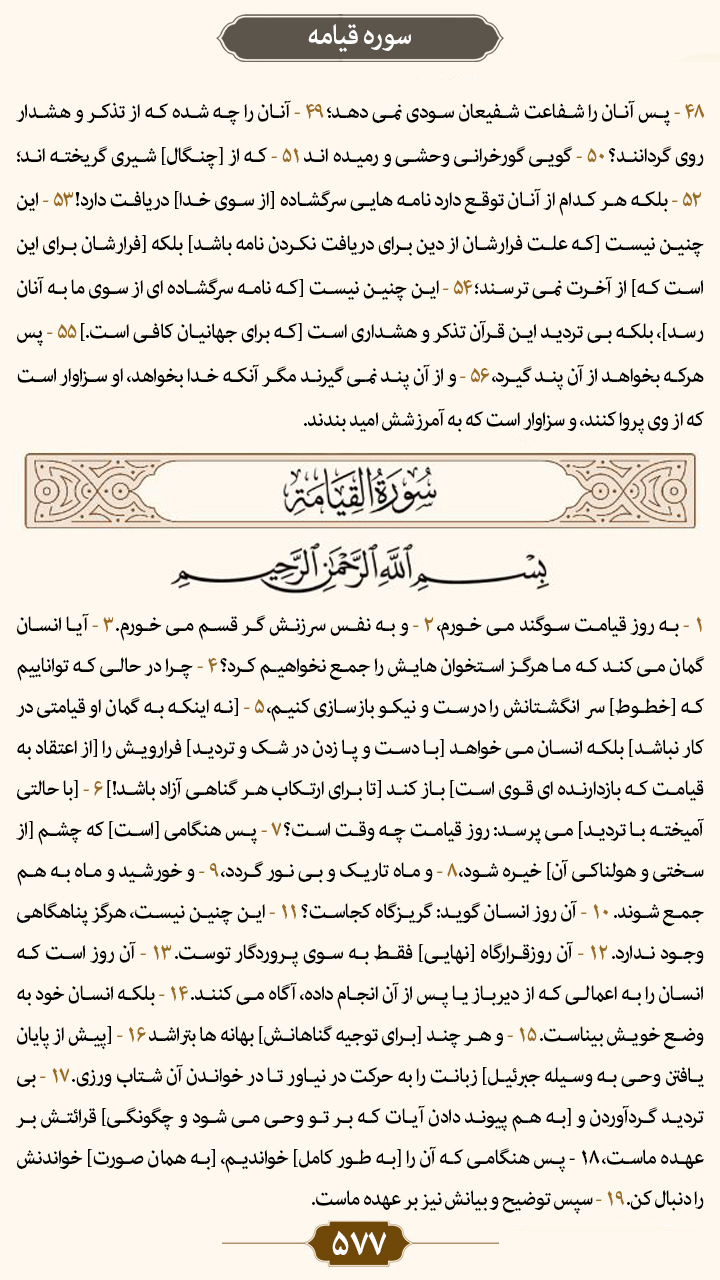 سوره قیامه
۴۸ - پس آنان را شفاعت شفیعان سودی نمی دهد؛ ۴۹ - آنان را چه شده که از تذکر و هشدار
روی گردانند؟ ۵۰ - گویی گورخرانی وحشی و رمیده اند ۵۱ - که از [چنگال] شیری گریخته اند؛
۵۲ - بلکه هر کدام از آنان توقع دارد نامه هایی سرگشاده [از سوی خدا] دریافت دارد! ۵۳ - این
چنین نیست [که علت فرارشان از دین برای دریافت نکردن نامه باشد] بلکه [فرارشان برای این
است که] از آخرت نمی ترسند؛ ۵۴ - این چنین نیست [که نامه سرگشاده ای از سوی ما به آنان
رسد]، بلکه بی تردید این قرآن تذکر و هشداری است [که برای جهانیان کافی است.] ۵۵ - پس
هرکه بخواهد از آن پند گیرد، ۵۶ - و از آن پند نمی گیرند مگر آنکه خدا بخواهد، او سزاوار است
که از وی پروا کنند، و سزاوار است که به آمرزشش امید بندند.
سُورَةُ القِيَامَةِ
بِسْمِ ٱللَّهِ ٱلرَّحْمَٰنِ ٱلرَّحِيمِ
۱ - به روز قیامت سوگند می خورم، ۲ - و به نفس سرزنش گر قسم می خورم. ۳ - آیا انسان
گمان می کند که ما هرگز استخوان هایش را جمع نخواهیم کرد؟ ۴ - چرا در حالی که تواناییم
که [خطوط] سر انگشتانش را درست و نیکو بازسازی کنیم، ۵ - [نه اینکه به گمان او قیامتی در
کار نباشد] بلکه انسان می خواهد [با دست و پا زدن در شک و تردید] فرارویش را [از اعتقاد به
قیامت که بازدارنده ای قوی است] باز کند [تا برای ارتکاب هر گناهی آزاد باشد!] ۶ - [با حالتی
آمیخته با تردید] می پرسد: روز قیامت چه وقت است؟ ۷ - پس هنگامی [است] که چشم [از
سختی و هولناکی آن] خیره شود، ۸ - و ماه تاریک و بی نور گردد، ۹ - و خورشید و ماه به هم
جمع شوند. ۱۰ - آن روز انسان گوید: گریزگاه کجاست؟ ۱۱ - این چنین نیست، هرگز پناهگاهی
وجود ندارد. ۱۲ - آن روزقرارگاه [نهایی] فقط به سوی پروردگار توست. ۱۳ - آن روز است که
انسان را به اعمالی که از دیرباز یا پس از آن انجام داده، آگاه می کنند. ۱۴ - بلکه انسان خود به
وضع خویش بیناست. ۱۵ - و هر چند [برای توجیه گناهانش] بهانه ها بتراشد ۱۶ - [پیش از پایان
یافتن وحی به وسیله جبرئیل] زبانت را به حرکت در نیاور تا در خواندن آن شتاب ورزی. ۱۷ - بی
تردید گردآوردن و [به هم پیوند دادن آیات که بر تو وحی می شود و چگونگی] قرائتش بر
عهده ماست، ۱۸ - پس هنگامی که آن را [به طور کامل] خواندیم، [به همان صورت] خواندنش
را دنبال کن. ۱۹ - سپس توضیح و بیانش نیز بر عهده ماست.
۵۷۷